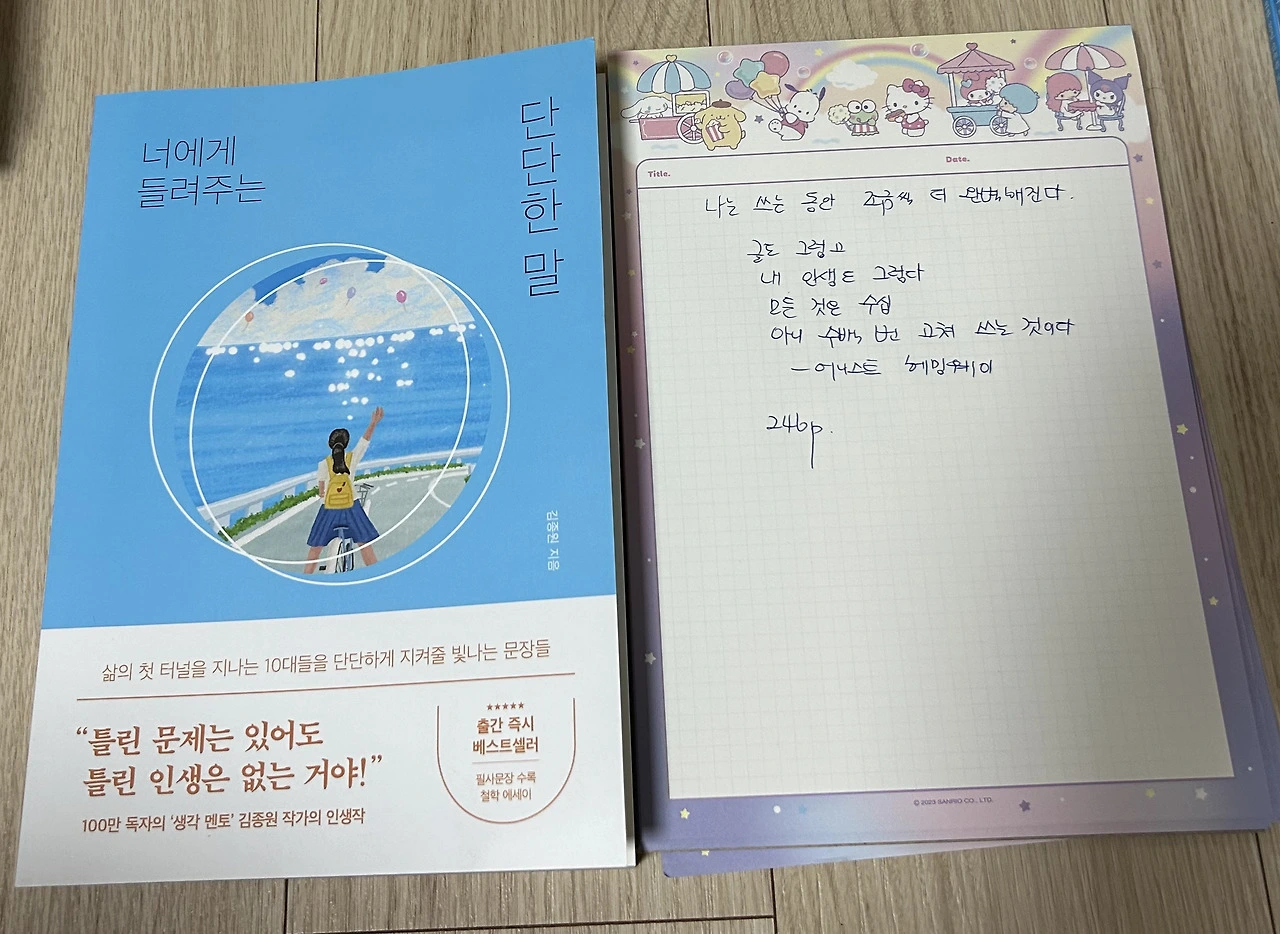 너에게
들려주는
단단한 말
김종원 지음
삶의 첫 터널을 지나는 10대들을 단단하게 지켜줄 빛나는 문장들
“틀린 문제는 있어도
틀린 인생은 없는 거야!”
100만 독자의 ‘생각 멘토’ 김종원 작가의 인생작
★★★★★
출간 즉시
베스트셀러
필사문장 수록
철학 에세이
Title.
Date.
나는 쓰는 동안 조금씩 더 완벽해진다.
글도 그렇고
내 인생도 그렇다
모든 것은 수십
아니 수백 번 고쳐 쓰는 것이다
- 어니스트 헤밍웨이
246p.
© 2023 SANRIO CO., LTD.